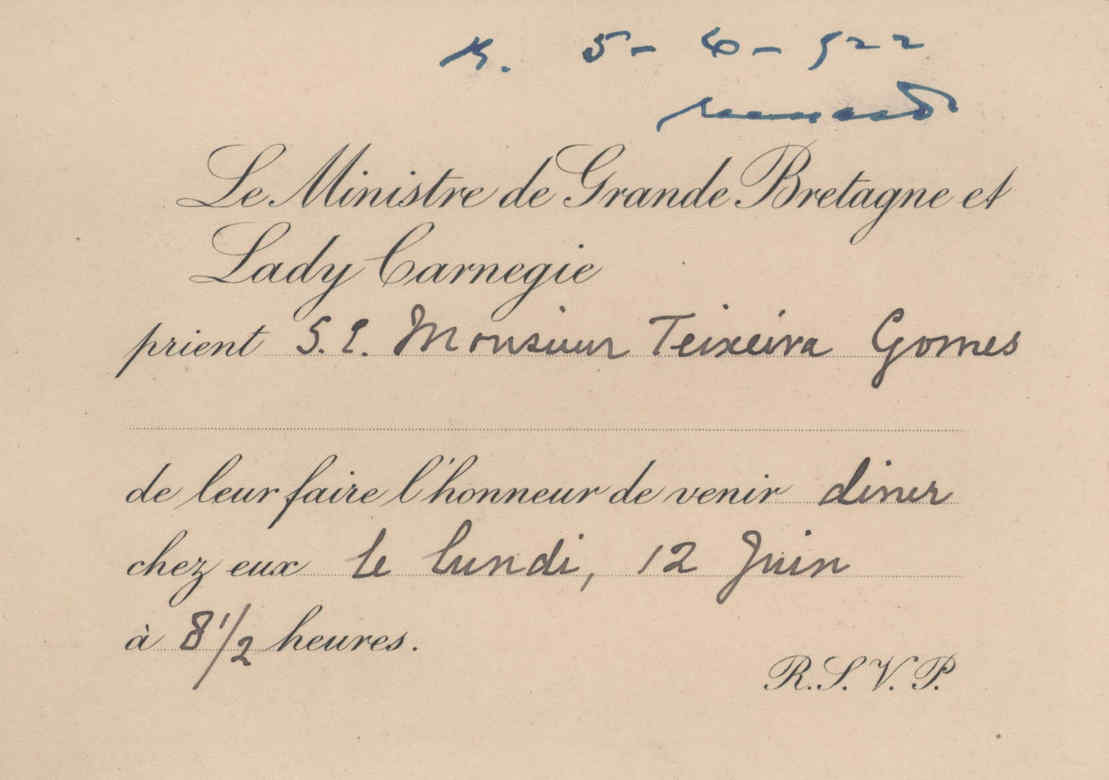 5-6-922
Le Ministre de Grande Bretagne et
Lady Carnegie
prient S.E. Monsieur Teixeira Gomes
de leur faire l'honneur de venir diner
chez eux le lundi, 12 Juin
à 8 1/2 heures.
R.S.V.P.